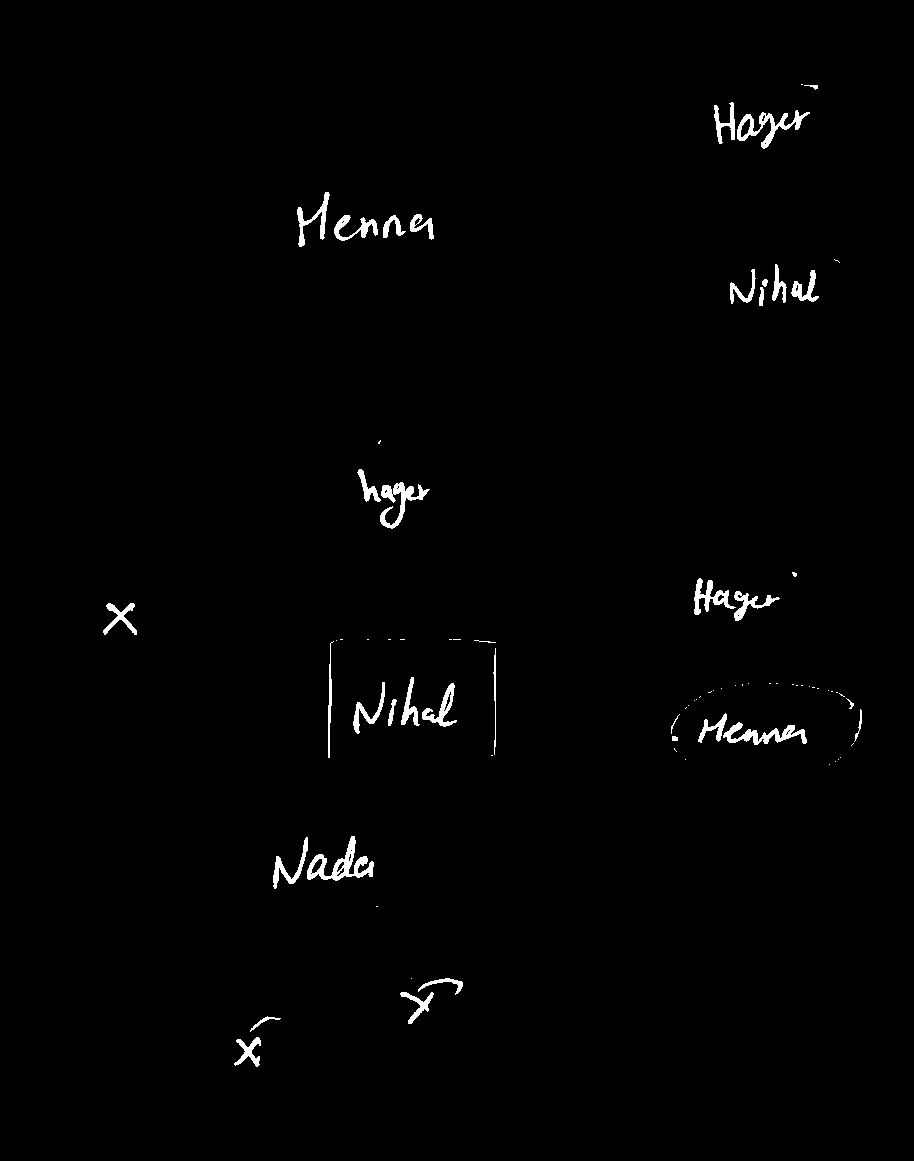 Hager
Menna
Nihal
hager
Hager
X
Nihal
Menna
Nada
X
X